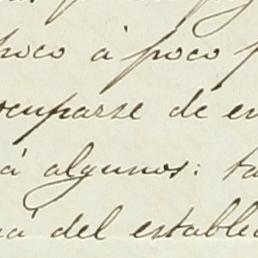 poco à poco
ocuparse de en
à algunos: ta
á del estable